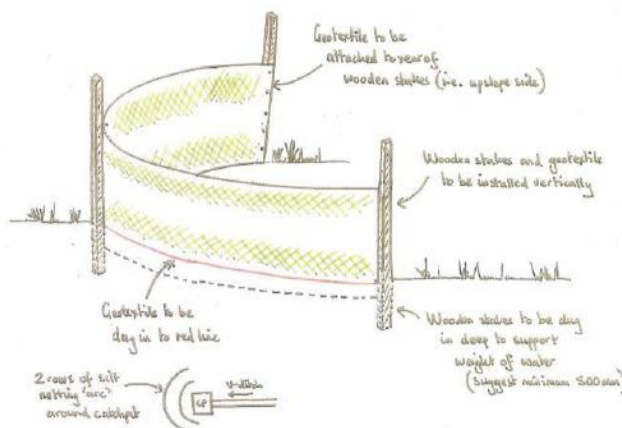 Geotextile to be
attached to rear of
wooden stakes (i.e. upslope side)
Wooden stakes and geotextile
to be installed vertically
Geotextile to be
dug in to red line
Wooden stakes to be dug
in deep to support
weight of water
(suggest minimum 500mm)
2 rows of silt
netting 'arc'
around catchpit
CP
V-ditch